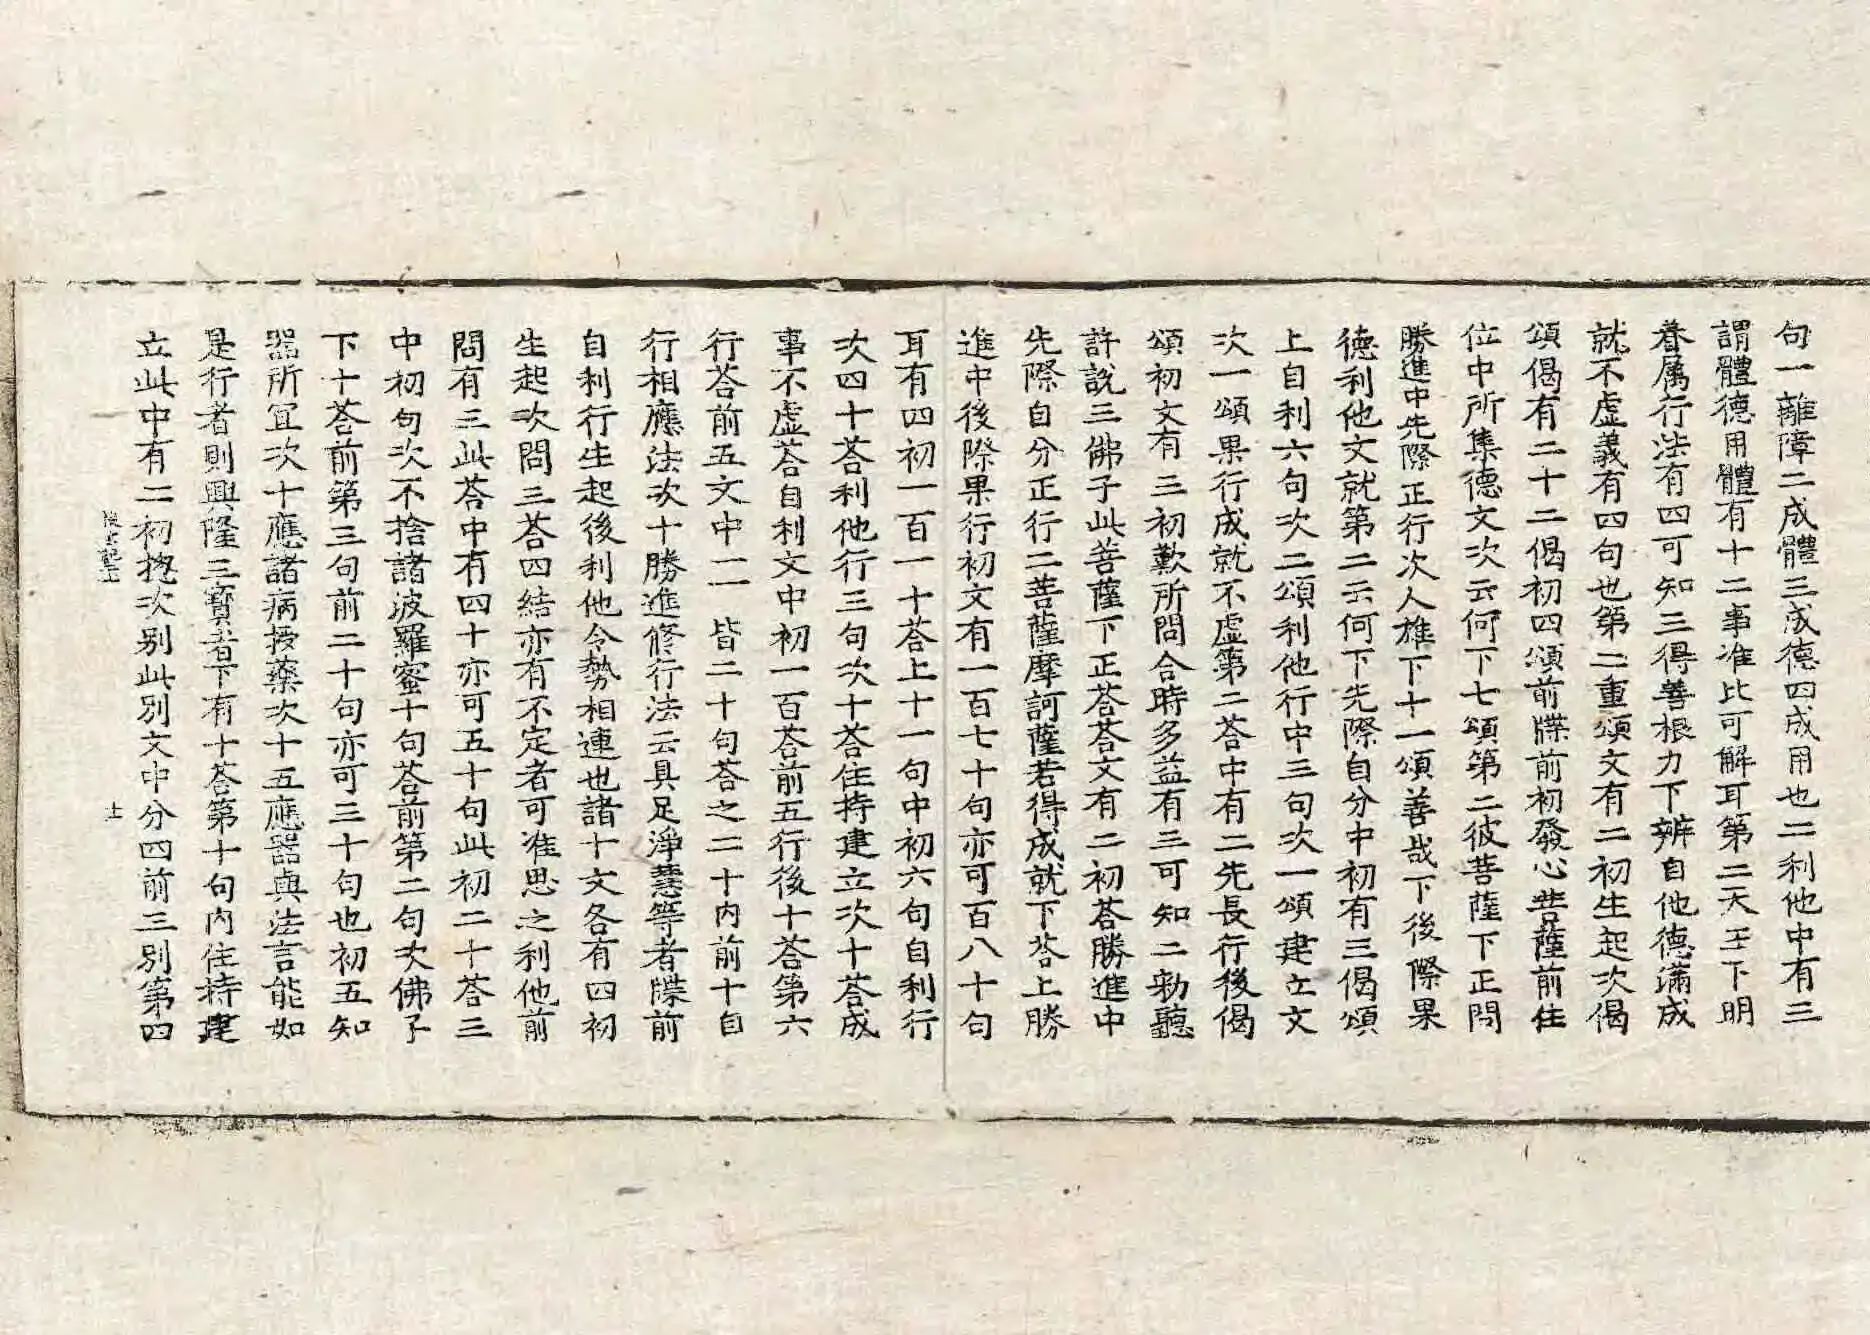 句一離障二成體三成德四成用也二利他中有三
謂體德用體有十二事准比可解耳第二天王下明
眷属行法有四可知三得善根力下辨自他德滿成
就不虛義有四句也第二重頌文有二初生起次偈
頌偈有二十二偈初四頌前牒前初發心菩薩前住
位中所集德文次云何下七頌第二彼菩薩下正問
勝進中先際正行次人雄下十一頌善哉下後際果
德利他文就第二云何下先際自分中初有三偈頌
上自利六句次二頌利他行中三句次一頌建立文
次一頌果行成就不虛第二荅中有二先長行後偈
頌初文有三初歎所問合時多益有三可知二勑聽
許說三佛子此菩薩下正荅荅文有二初荅勝進中
先際自分正行二菩薩摩訶薩若得成就下荅上勝
進中後際果行初文有一百七十句亦可百八十句
耳有四初一百一十荅上十一句中初六句自利行
次四十荅利他行三句次十荅住持建立次十荅成
事不虛荅自利文中初一百荅前五行後十荅第六
行荅前五文中一一皆二十句荅之二十內前十自
行相應法次十勝進修行法云具足淨慧等者牒前
自利行生起後利他令勢相連也諸十文各有四初
生起次問三荅四結亦有不定者可准思之利他前
問有三此荅中有四十亦可五十句此初二十荅三
中初句次不捨諸波羅蜜十句荅前第二句次佛子
下十荅前第三句前二十句亦可三十句也初五知
器所宜次十應諸病授藥次十五應器與法言能如
是行者則興隆三寶者下有十荅第十句內住持建
立此中有二初揔次別此別文中分四前三別第四